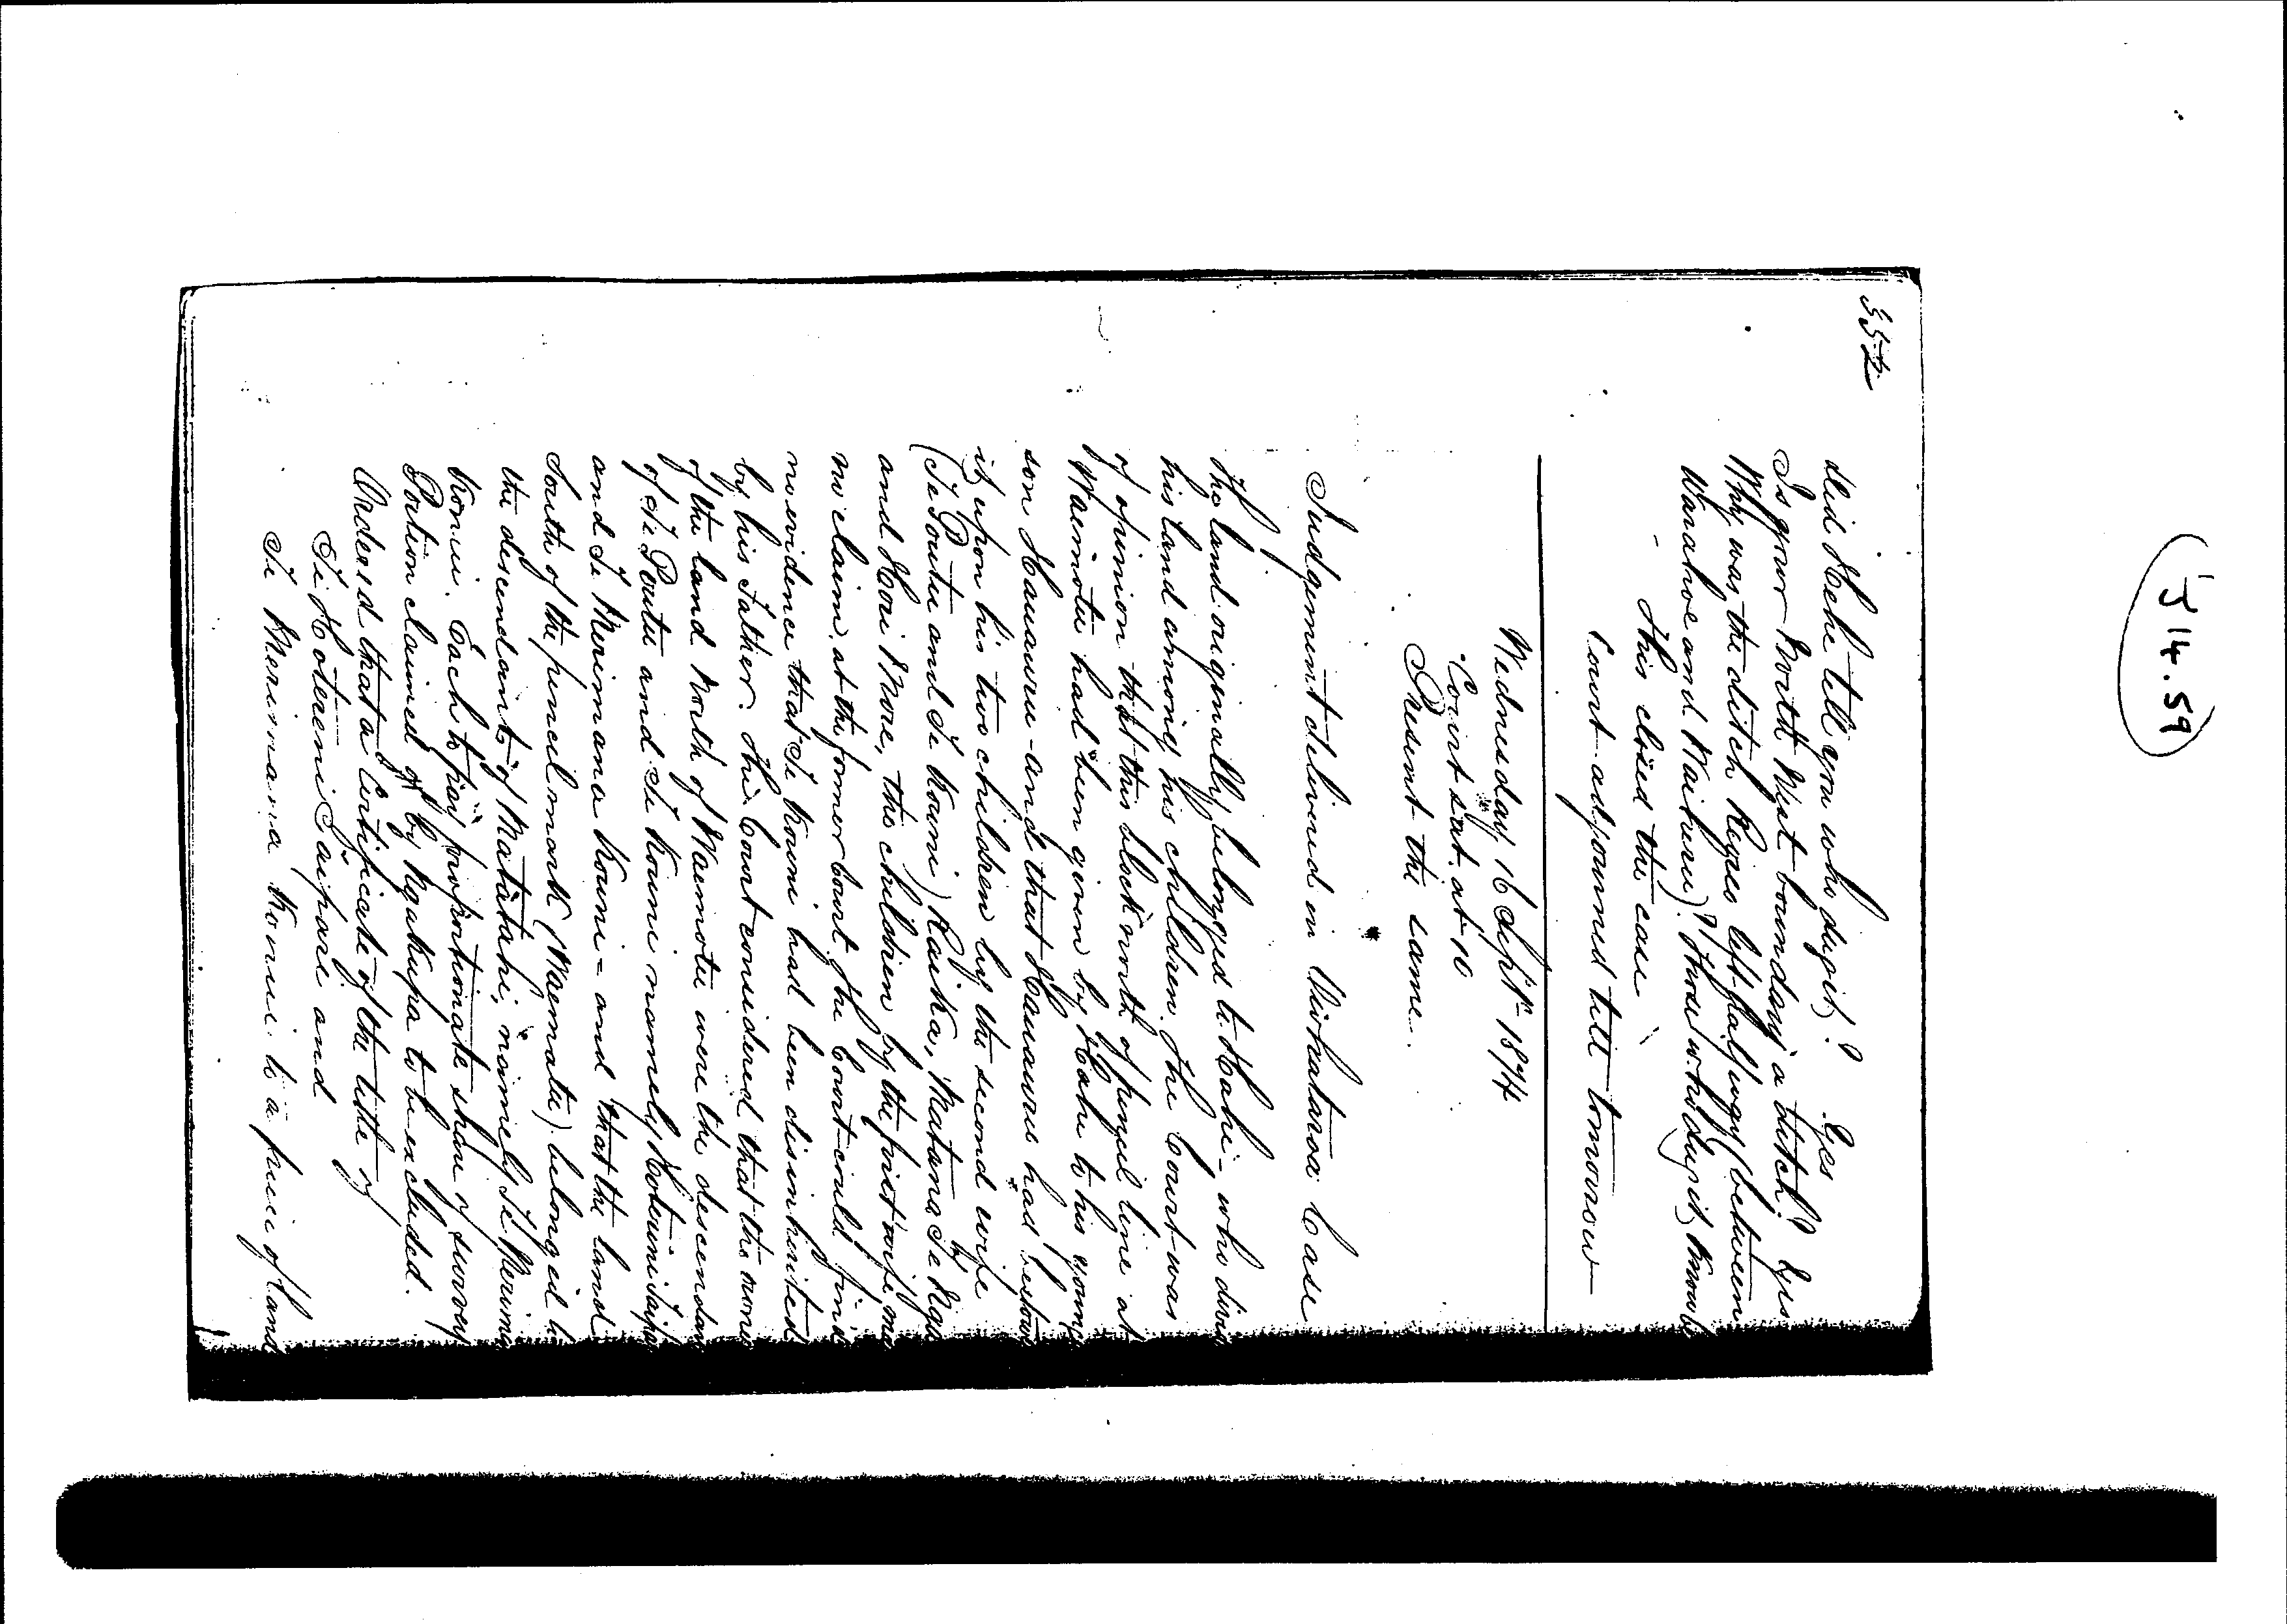 J 14.59
352
did Heke tell you who dug it? Yes
Is your North West boundary a ditch? Yes
Why was the ditch Kezies left half way (between
Warahoe and Waikuru)? Those who dug it, know
This closed the case
Court adjourned till tomorrow
Wednesday 16 Septr 1874
Court sat at 10
Present the same.
Judgement delivered in Case
The land originally belonged to Hahu - who
his land among his children. The Court was
of opinion that this block north of pencil line at
Waemotu had been given by Hahu to his young
son Hauauru - and that Hauauru had
it upon his two children by the second wife
(Te Poutu and Te Kouni) Raika, Matana Te
and Hori More, the children by the first wife,
no claim, at the former Court. The Court could find
no evidence that Te Kouni had been disinherited
by his Father. The Court considered that the
of the land North of Waemotu were the
of Te Poutu and Te Kouni namely Hotereni Taipari
and Te Merimana Kouni - and that the land
South of the pencil mark (Waemotu) belonged to
the descendants of Matatahi, namely Te
Konui. Each to pay proportionate share of survey
Portion claimed by Ngakupa to be excluded.
Ordered that a Certificate of the title of
Te Hotereni Taipari and
Te Merimana Konui to a piece of land